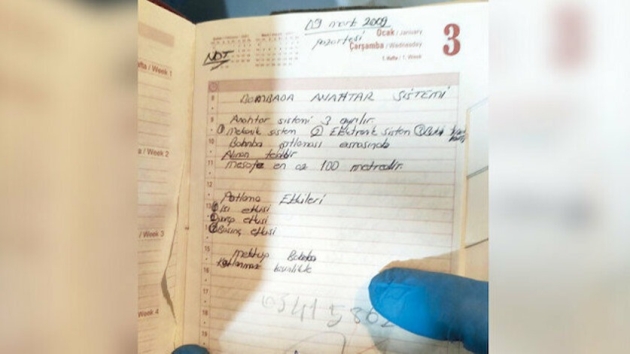 09 mart 2009
pazartesi
Ocak / January
Çarşamba / Wednesday
1. Hafta / 1. Week
3
NOT
BOMBADA ANAHTAR SİSTEMİ
Anahtar sistemi 3 ayrılır
① Mekanik sistem ② Elektronik sistem ③
Bomba patlaması esnasında
Alınan tedbir
Mesafe en az 100 metredir.
Patlama Etkileri
① Isı etkisi
②
③ Basınç etkisi
Bomba
fta / Week 1
/ Week 2
/ Week 3
Week 4
8
9
10
11
12
13
14
15
16
17
18